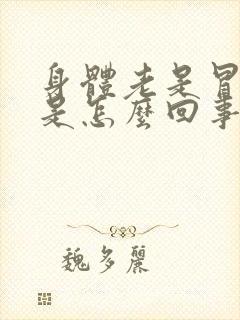 身體老是冒
是怎麼回事
魏多麗